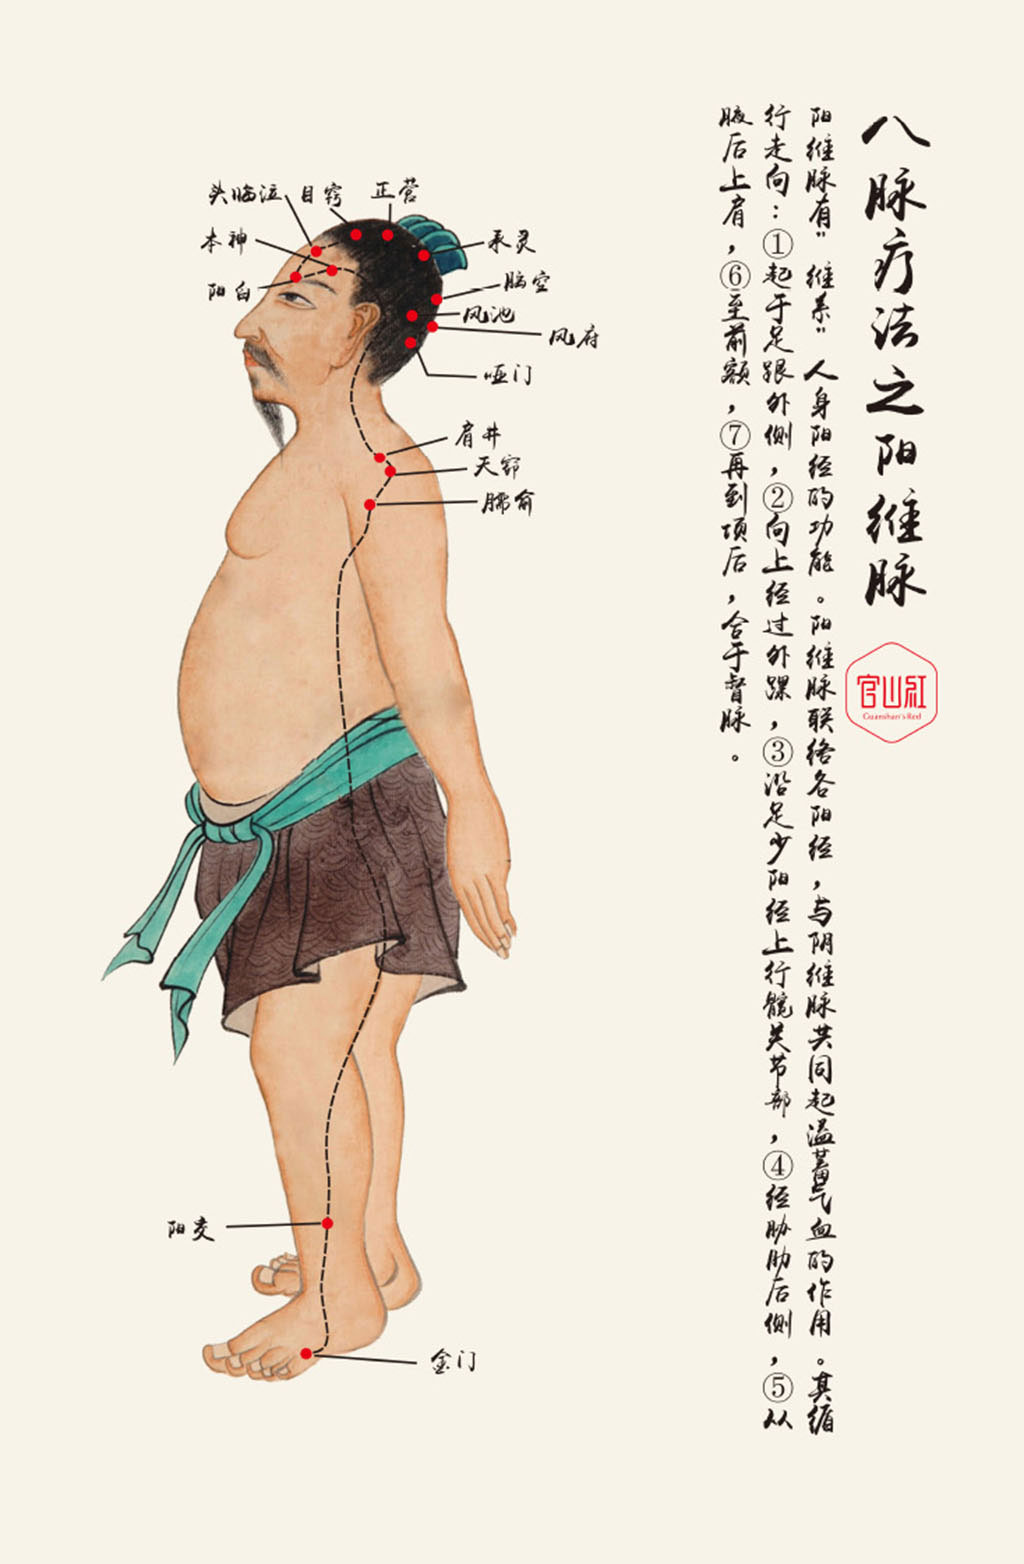 八脉疗法之阳维脉
官山红
Guanshan's Red
阳维脉有"维系"人身阳经的功能。阳维脉联络各阳经，与阴维脉共同起溢蓄气血的作用。其循
行走向：①起于足跟外侧，②向上经过外踝，③沿足少阳经上行髋关节部，④经胁肋后侧，⑤从
腋后上肩，⑥至前额，⑦再到项后，合于督脉。
头临泣
目窍
正营
本神
承灵
阳白
脑空
风池
风府
哑门
肩井
天窌
臑俞
阳交
金门